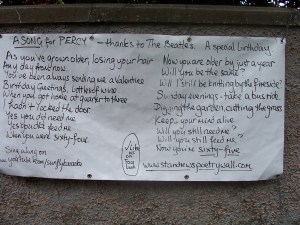 A SONG for PERCY * — thanks to The Beatles. A special birthday
As you've grown older, losing your hair
Any day from now
You've been always sending me a valentine
Birthday Greetings, bottles of wine.
When you got home at quarter to three
I hadn't locked the door
Yes you did need me
Yes you did feed me
When you were sixty-four
Sing along on
Now you are older by just a year
Will you be the same?
Will I still be knitting by the fireside?
Sunday evenings - take a bus ride,
Digging the garden, cutting the grass
Keep your mind alive
Will you still need me?
Will you still feed me?
Now you're sixty-five
www.standrewspoetrywall.com